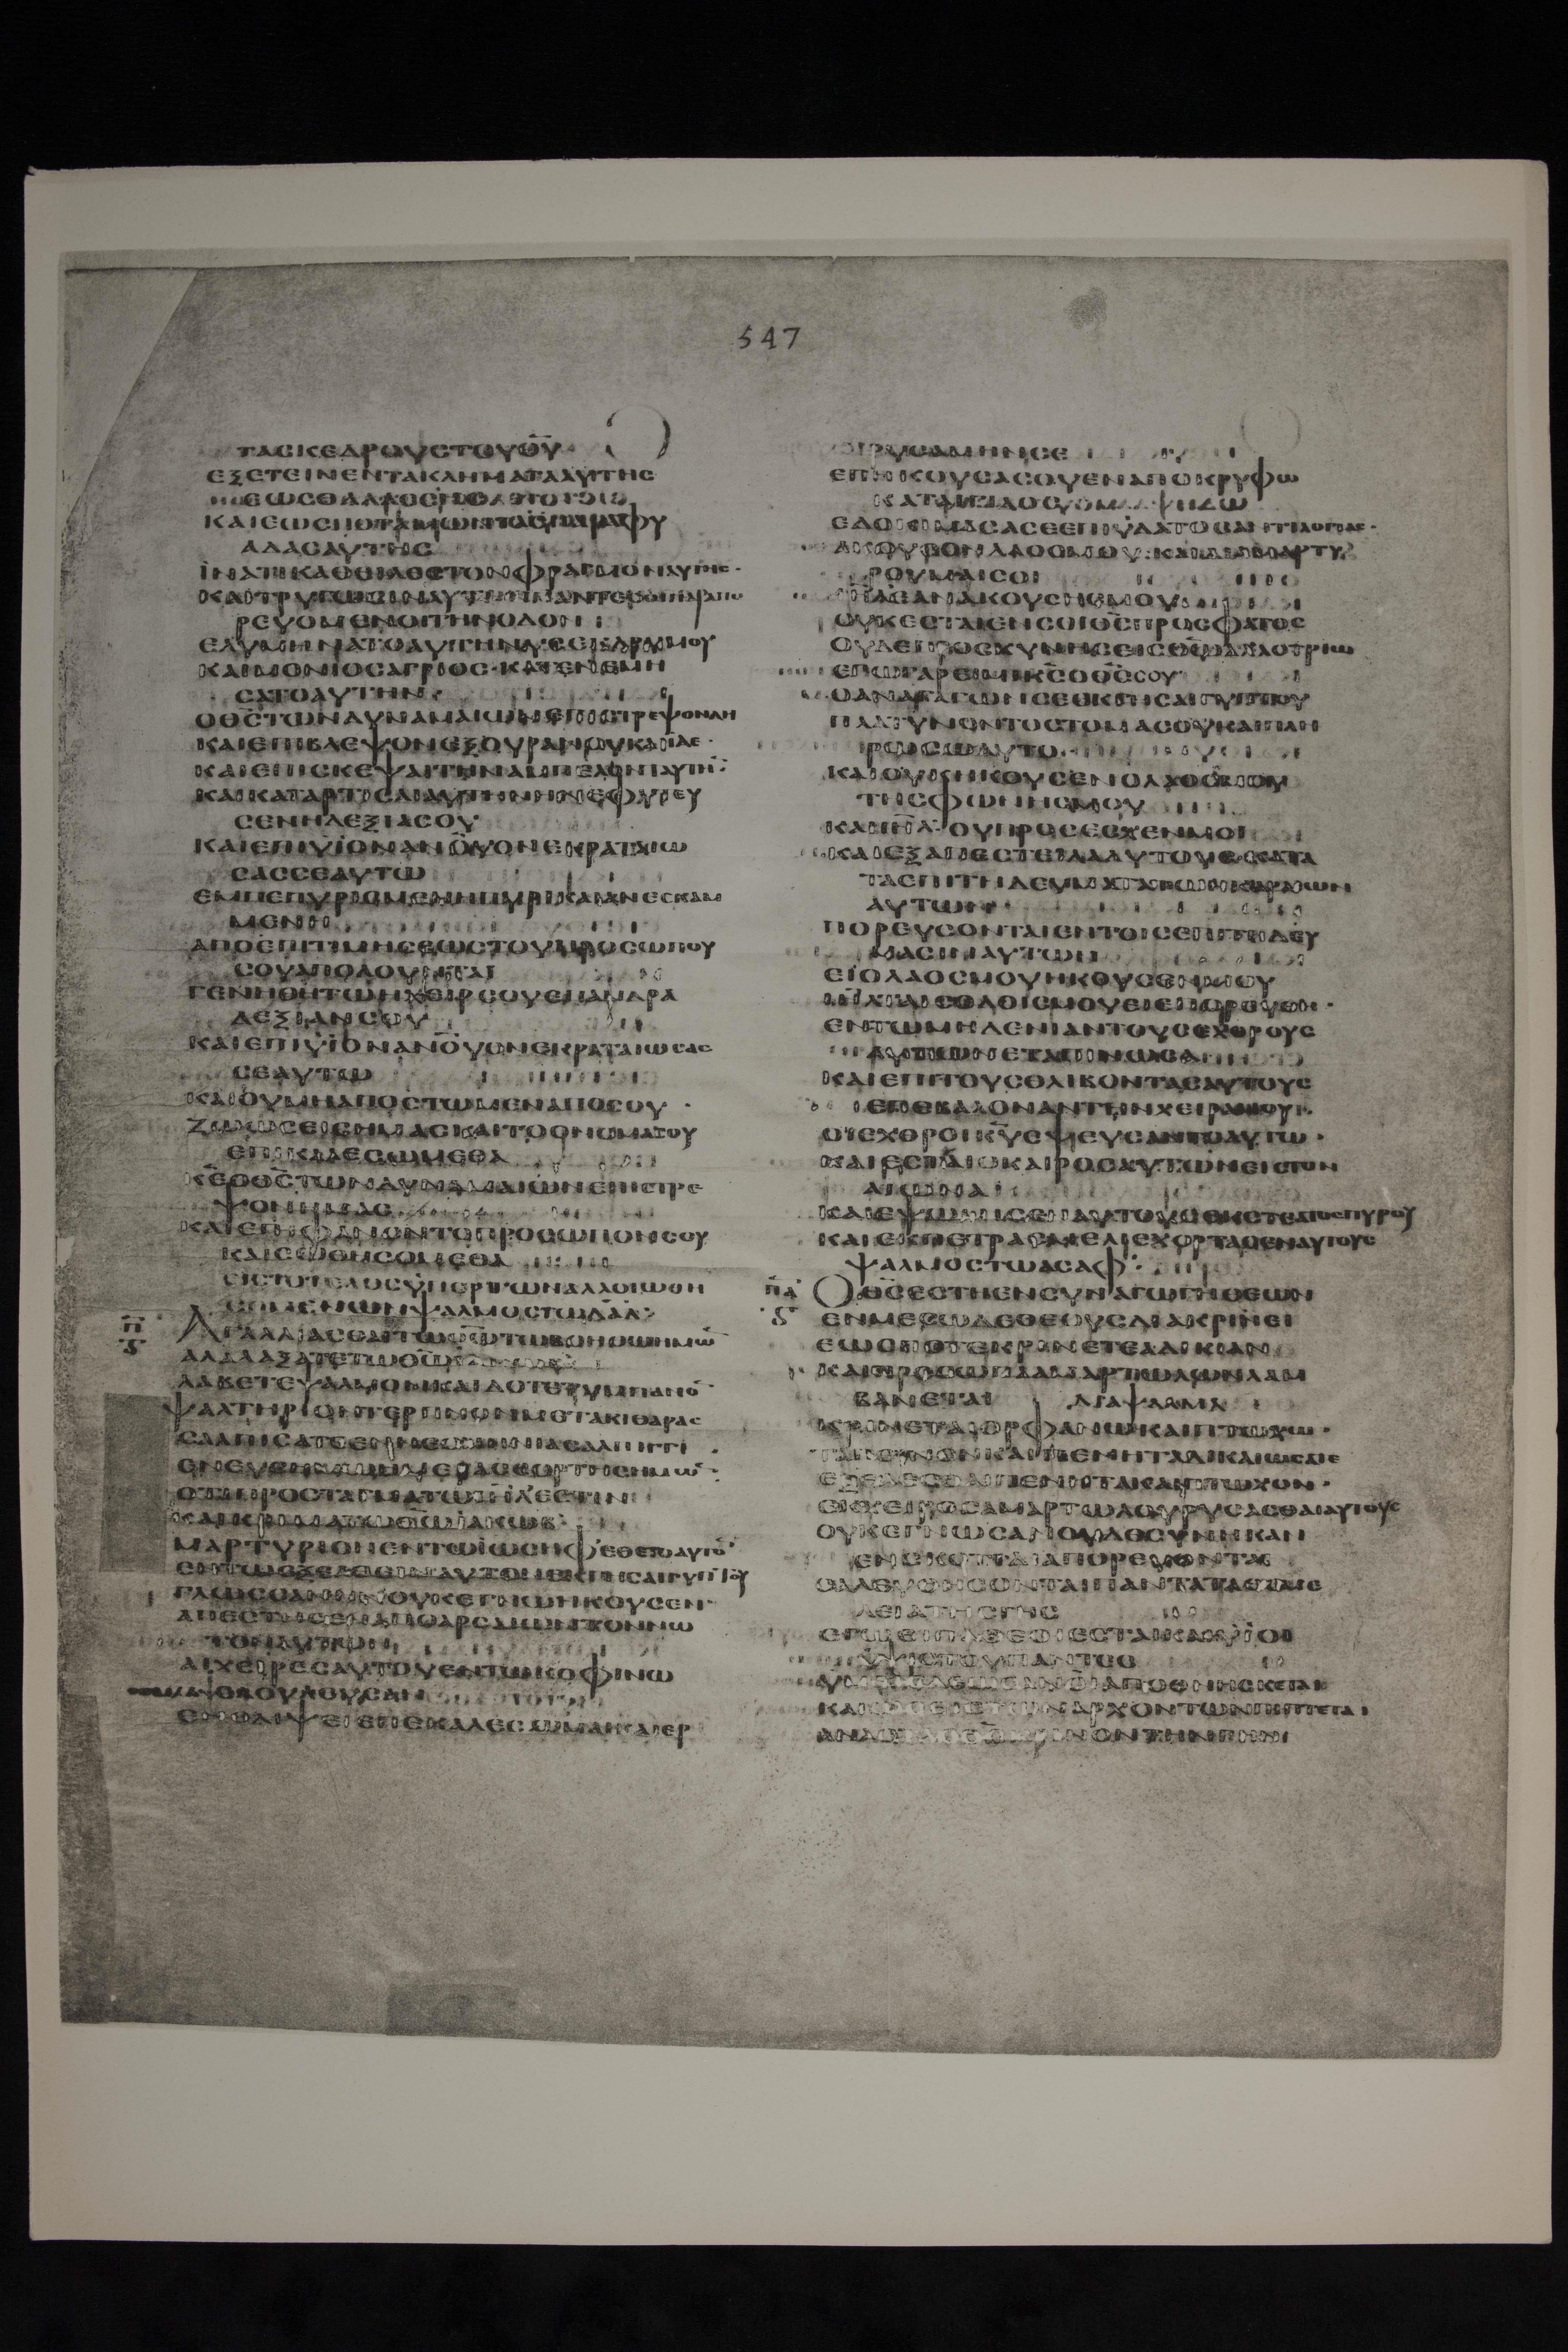 547
ΤΑΣΚΕΔΡΟΥΣΤΟΥΘ̅Υ̅
ΕΞΕΤΕΙΝΕΝΤΑΚΛΗΜΑΤΑΑΥΤΗΣ
ΕΩΣΘΑΛΑΣΣΗΣ
ΚΑΙΕΩΣΠΟΤΑΜΩΝ
ΑΔΑΣΑΥΤΗΣ
ΪΝΑΤΙΚΑΘΕΙΛΕΣΤΟΝΦΡΑΓΜΟΝΑΥΤΗΣ·
ΚΑΙΤΡΥΓΩΣΙΝΑΥΤΗΝΠΑΝΤΕΣΟΙΠΑΡΑΠΟ
ΡΕΥΟΜΕΝΟΙΤΗΝΟΔΟΝ
ΕΛΥΜΗΝΑΤΟΑΥΤΗΝΥΣΕΚΔΡΥΜΟΥ
ΚΑΙΜΟΝΙΟΣΑΓΡΙΟΣ·ΚΑΤΕΝΕΜΗ
ΣΑΤΟΑΥΤΗΝ·
ΟΘ̅Σ̅ΤΩΝΔΥΝΑΜΑΙΩΝΕΠΙΣΤΡΕΨΟΝΔΗ
ΚΑΙΕΠΙΒΛΕΨΟΝΕΞΟΥΡΑΝΟΥΚΑΙΙΔΕ·
ΚΑΙΕΠΙΣΚΕΨΑΙΤΗΝΑΜΠΕΛΟΝΤΑΥΤΗ̅·
ΚΑΙΚΑΤΑΡΤΙΣΑΙΑΥΤΗΝΗΝΕΦΥΤΕΥ
ΣΕΝΗΔΕΞΙΑΣΟΥ
ΚΑΙΕΠΙΥΪΟΝΑΝΟ̅Υ̅ΟΝΕΚΡΑΤΑΙΩ
ΣΑΣΣΕΑΥΤΩ
ΕΜΠΕΠΥΡΙΣΜΕΝΗΠΥΡΙΚΑΙΑΝΕΣΚΑΜ
ΜΕΝΗ
ΑΠΟΕΠΙΤΙΜΗΣΕΩΣΤΟΥΠΡΟΣΩΠΟΥ
ΣΟΥΑΠΟΛΟΥΝΤΑΙ
ΓΕΝΗΘΗΤΩΗΧΕΙΡΣΟΥΕΠΑΝΔΡΑ
ΔΕΞΙΑΝΣΟΥ
ΚΑΙΕΠΙΥΪΟΝΑΝΟ̅Υ̅ΟΝΕΚΡΑΤΑΙΩΣΑΣ
ΣΕΑΥΤΩ
ΚΑΙΟΥΜΗΑΠΟΣΤΩΜΕΝΑΠΟΣΟΥ·
ΖΩΩΣΕΙΣΗΜΑΣΚΑΙΤΟΟΝΟΜΑΣΟΥ
ΕΠΙΚΑΛΕΣΩΜΕΘΑ
Κ̅Ε̅ΟΘ̅Σ̅ΤΩΝΔΥΝΑΜΑΙΩΝΕΠΙΣΤΡΕ
ΨΟΝΗΜΑΣ
ΚΑΙΕΠΙΦΑΝΟΝΤΟΠΡΟΣΩΠΟΝΣΟΥ
ΚΑΙΣΩΘΗΣΟΜΕΘΑ
ΕΙΣΤΟΤΕΛΟΣΥΠΕΡΤΩΝΑΛΛΟΙΩΘΗ
ΣΟΜΕΝΩΝΨΑΛΜΟΣΤΩΔΑΔ
Π
ΑΓΑΛΛΙΑΣΘΕΤΩΘ̅Ω̅ΤΩΒΟΗΘΩΗΜΩ̅
ΑΛΑΛΑΞΑΤΕΤΩΘ̅Ω̅
ΛΑΒΕΤΕΨΑΛΜΟΝΚΑΙΔΟΤΕΤΥΜΠΑΝΟ̅
ΨΑΛΤΗΡΙΟΝΤΕΡΠΝΟΝΜΕΤΑΚΙΘΑΡΑΣ
ΣΑΛΠΙΣΑΤΕΕΝΝΕΟΜΗΝΙΑΣΑΛΠΙΓΓΙ
ΕΝΕΥΣΗΜΩΗΜΕΡΑΣΕΟΡΤΗΣΗΜΩ̅·
ΟΤΙΠΡΟΣΤΑΓΜΑΤΩΙ̅Η̅Λ̅ΕΣΤΙΝ
ΚΑΙΚΡΙΜΑΤΩΘ̅Ω̅ΙΑΚΩΒ
ΜΑΡΤΥΡΙΟΝΕΝΤΩΪΩΣΗΦΕΘΕΤΟΑΥΤΟ̅
ΕΝΤΩΕΞΕΛΘΕΙΝΑΥΤΟΝΕΚΓΗΣΑΙΓΥΠΤΟΥ
ΓΛΩΣΣΑΝΗΝΟΥΚΕΓΝΩΗΚΟΥΣΕΝ·
ΑΠΕΣΤΗΣΕΝΑΠΟΑΡΣΕΩΝΤΟΝΝΩ
ΤΟΝΑΥΤΟΥ
ΑΙΧΕΙΡΕΣΑΥΤΟΥΕΝΤΩΚΟΦΙΝΩ
ΕΔΟΥΛΕΥΣΑΝ
ΕΝΘΛΙΨΕΙΕΠΕΚΑΛΕΣΩΜΕΚΑΙΕΡ
ΡΥΣΑΜΗΝΣΕ
ΕΠΗΚΟΥΣΑΣΟΥΕΝΑΠΟΚΡΥΦΩ
ΚΑΤΑΙΓΙΔΟΣ
ΕΔΟΚΙΜΑΣΑΣΕΕΠΙΥΔΑΤΟΣΑΝΤΙΛΟΓΙΑΣ·
ΑΚΟΥΣΟΝΛΑΟΣΜΟΥ
ΡΟΥΜΑΙΣΟΙ
ΕΑΝΑΚΟΥΣΗΣΜΟΥ
ΟΥΚΕΣΤΑΙΕΝΣΟΙΘ̅Σ̅ΠΡΟΣΦΑΤΟΣ
ΟΥΔΕΠΡΟΣΚΥΝΗΣΕΙΣΘ̅Ω̅ΑΛΛΟΤΡΙΩ
ΕΓΩΓΑΡΕΙΜΙΚ̅Σ̅ΟΘ̅Σ̅ΣΟΥ
ΟΑΝΑΓΑΓΩΝΣΕΕΚΓΗΣΑΙΓΥΠΤΟΥ
ΠΛΑΤΥΝΟΝΤΟΣΤΟΜΑΣΟΥΚΑΙΠΛΗ
ΡΩΣΩΑΥΤΟ
ΚΑΙΟΥΚΗΚΟΥΣΕΝΟΛΑΟΣΜΟΥ
ΤΗΣΦΩΝΗΣΜΟΥ
ΚΑΙΙ̅Η̅Λ̅ΟΥΠΡΟΣΕΣΧΕΝΜΟΙ
ΚΑΙΕΞΑΠΕΣΤΕΙΛΑΑΥΤΟΥΣΚΑΤΑ
ΤΑΕΠΙΤΗΔΕΥΜΑΤΑΤΩΝΚΑΡΔΙΩΝ
ΑΥΤΩΝ
ΠΟΡΕΥΣΟΝΤΑΙΕΝΤΟΙΣΕΠΙΤΗΔΕΥ
ΜΑΣΙΝΑΥΤΩΝ
ΕΙΟΛΑΟΣΜΟΥΗΚΟΥΣΕΝΜΟΥ
Ι̅Η̅Λ̅ΤΑΙΣΟΔΟΙΣΜΟΥΕΙΕΠΟΡΕΥΘΗ·
ΕΝΤΩΜΗΔΕΝΙΑΝΤΟΥΣΕΧΘΡΟΥΣ
ΑΥΤΩΝΕΤΑΠΙΝΩΣΑ
ΚΑΙΕΠΙΤΟΥΣΘΛΙΒΟΝΤΑΣΑΥΤΟΥΣ
ΕΠΕΒΑΛΟΝΑΝΤΗΝΧΕΙΡΑΜΟΥ
ΟΙΕΧΘΡΟΙΚ̅Υ̅ΕΨΕΥΣΑΝΤΟΑΥΤΩ·
ΚΑΙΕΣΤΑΙΟΚΑΙΡΟΣΑΥΤΩΝΕΙΣΤΟΝ
ΑΙΩΝΑ
ΚΑΙΕΨΩΜΙΣΕΝΑΥΤΟΥΣΕΚΣΤΕΑΤΟΣΠΥΡΟΥ
ΚΑΙΕΚΠΕΤΡΑΣΜΕΛΙΕΧΟΡΤΑΣΕΝΑΥΤΟΥΣ
ΨΑΛΜΟΣΤΩΑΣΑΦ
ΠΑ
ΟΘ̅Σ̅ΕΣΤΗΕΝΣΥΝΑΓΩΓΗΘΕΩΝ
ΕΝΜΕΣΩΔΕΘΕΟΥΣΔΙΑΚΡΙΝΕΙ
ΕΩΣΠΟΤΕΚΡΙΝΕΤΕΑΔΙΚΙΑΝ
ΚΑΙΠΡΟΣΩΠΑΑΜΑΡΤΩΛΩΝΛΑΜ
ΒΑΝΕΤΑΙ ΔΙΑΨΑΛΜΑ
ΚΡΙΝΕΤΑΙΟΡΦΑΝΩΚΑΙΠΤΩΧΩ·
ΤΑΠΕΙΝΟΝΚΑΙΠΕΝΗΤΑΔΙΚΑΙΩΣΑΤΕ
ΕΞΕΛΕΣΘΑΙΠΕΝΗΤΑΚΑΙΠΤΩΧΟΝ·
ΕΚΧΕΙΡΟΣΑΜΑΡΤΩΛΟΥΡΥΣΑΣΘΑΙΑΥΤΟΥΣ
ΟΥΚΕΓΝΩΣΑΝΟΥΔΕΣΥΝΗΚΑΝ
ΕΝΣΚΟΤΙΑΔΙΑΠΟΡΕΥΟΝΤΑΙ
ΣΑΛΕΥΘΗΣΟΝΤΑΙΠΑΝΤΑΤΑΘΕΜΕ
ΛΕΙΑΤΗΣΓΗΣ
ΕΓΩΕΙΠΑΘΕΟΙΕΣΤΑΙΚΑΙΥΪΟΙ
ΥΨΙΣΤΟΥΠΑΝΤΕΣ
ΑΠΟΘΝΗΣΚΕΤΑΙ
ΑΡΧΟΝΤΩΝΠΙΠΤΕΤΑΙ
ΚΡΙΝΟΝΤΗΝΓΗΝ